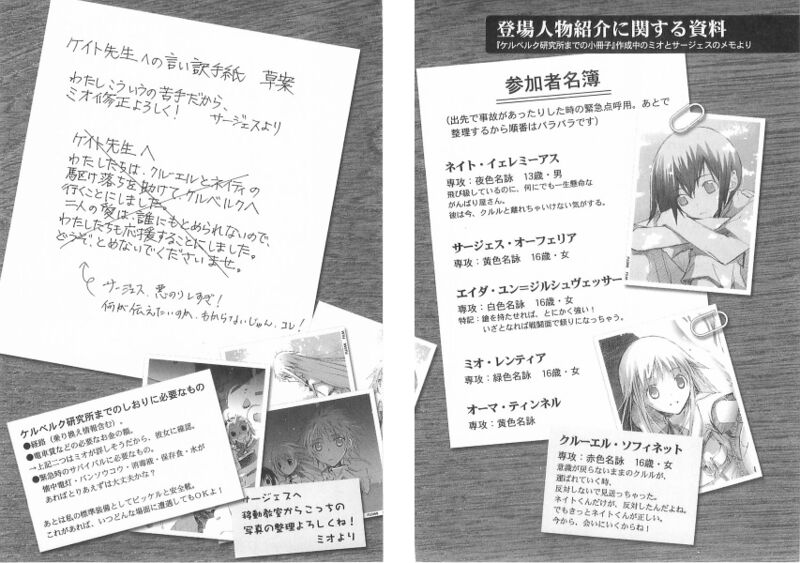 ケイト先生への言い訳手紙 草案
わたしこういうの苦手だから、
ミオ修正よろしく! サージェスより
ケイト先生へ
わたしたちは、クルーエルとネイティの
駆け落ちを助けて、ケルベルクへ
行くことにしました。
二人の愛は、誰にもとめられないので、
わたしたちも応援することにしました。
どうぞ、とめないでくださいませ。
サージェス、悪のりしすぎ!
何が伝えたいのか、わからないじゃん、コレ!
ケルベルク研究所までのしおりに必要なもの
●経路(乗り換え情報含む)。
●電車賃などの必要なお金の額。
→上記二つはミオが詳しそうだから、彼女に確認。
●緊急時のサバイバルに必要なもの。
懐中電灯・バンソウコウ・消毒液・保存食・水が
あればとりあえずは大丈夫かな?
あとは私の標準装備としてピッケルと安全靴。
これがあれば、いつどんな場面に遭遇してもOKよ!
サージェスへ
移動教室からこっちの
写真の整理よろしくね!
ミオより
登場人物紹介に関する資料
『ケルベルク研究所までの小冊子』作成中のミオとサージェスのメモより
参加者名簿
(出先で事故があったりした時の緊急点呼用。あとで
整理するから順番はバラバラです)
ネイト・イェレミーアス
専攻:夜色名詠 13歳・男
飛び級しているのに、何にでも一生懸命な
がんばり屋さん。
彼は今、クルルと離れちゃいけない気がする。
サージェス・オーフェリア
専攻:黄色名詠 16歳・女
エイダ・ユン=ジルシュヴェッサー
専攻:白色名詠 16歳・女
特記:鎗を持たせれば、とにかく強い!
いざとなれば戦闘面で頼りになっちゃう。
ミオ・レンティア
専攻:緑色名詠 16歳・女
オーマ・ティンネル
専攻:黄色名詠
クルーエル・ソフィネット
専攻:赤色名詠 16歳・女
意識が戻らないままのクルルが、
運ばれていく時、
反対しないで見送っちゃった。
ネイトくんだけが、反対したんだよね。
でもきっとネイトくんが正しい。
今から、会いにいくからね!